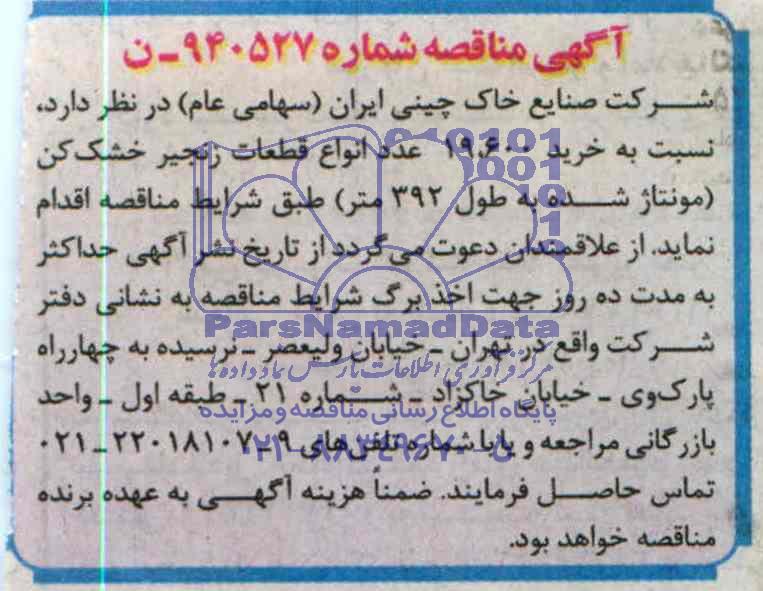 آگهی مناقصه شماره ۹۴۰۵۲۷ـ ن
شرکت صنایع خاک چینی ایران (سهامی عام) در نظر دارد،
نسبت به خرید ۱۹،۶۰۰ عدد انواع قطعات زنجیر خشک‌کن
(مونتاژ شده به طول ۳۹۲ متر) طبق شرایط مناقصه اقدام
نماید. از علاقمندان دعوت می‌گردد از تاریخ نشر آگهی حداکثر
به مدت ده روز جهت اخذ برگ شرایط مناقصه به نشانی دفتر
ParsNamadData
شرکت واقع در تهران ـ خیابان ولیعصر ـ نرسیده به چهارراه
مرکز فرآوری اطلاعات پارس نماد داده‌ها
پارک‌وی ـ خیابان خاکزاد ـ شماره ۲۱ ـ طبقه اول ـ واحد
پایگاه اطلاع رسانی مناقصه و مزایده
بازرگانی مراجعه و یا با شماره تلفن‌های ۹ـ۲۲۰۱۸۱۰۷ ـ۰۲۱
۰۲۱-۸۸۳۴۹۶۷۰-۵
تماس حاصل فرمایند. ضمناً هزینه آگهی به عهده برنده
مناقصه خواهد بود.